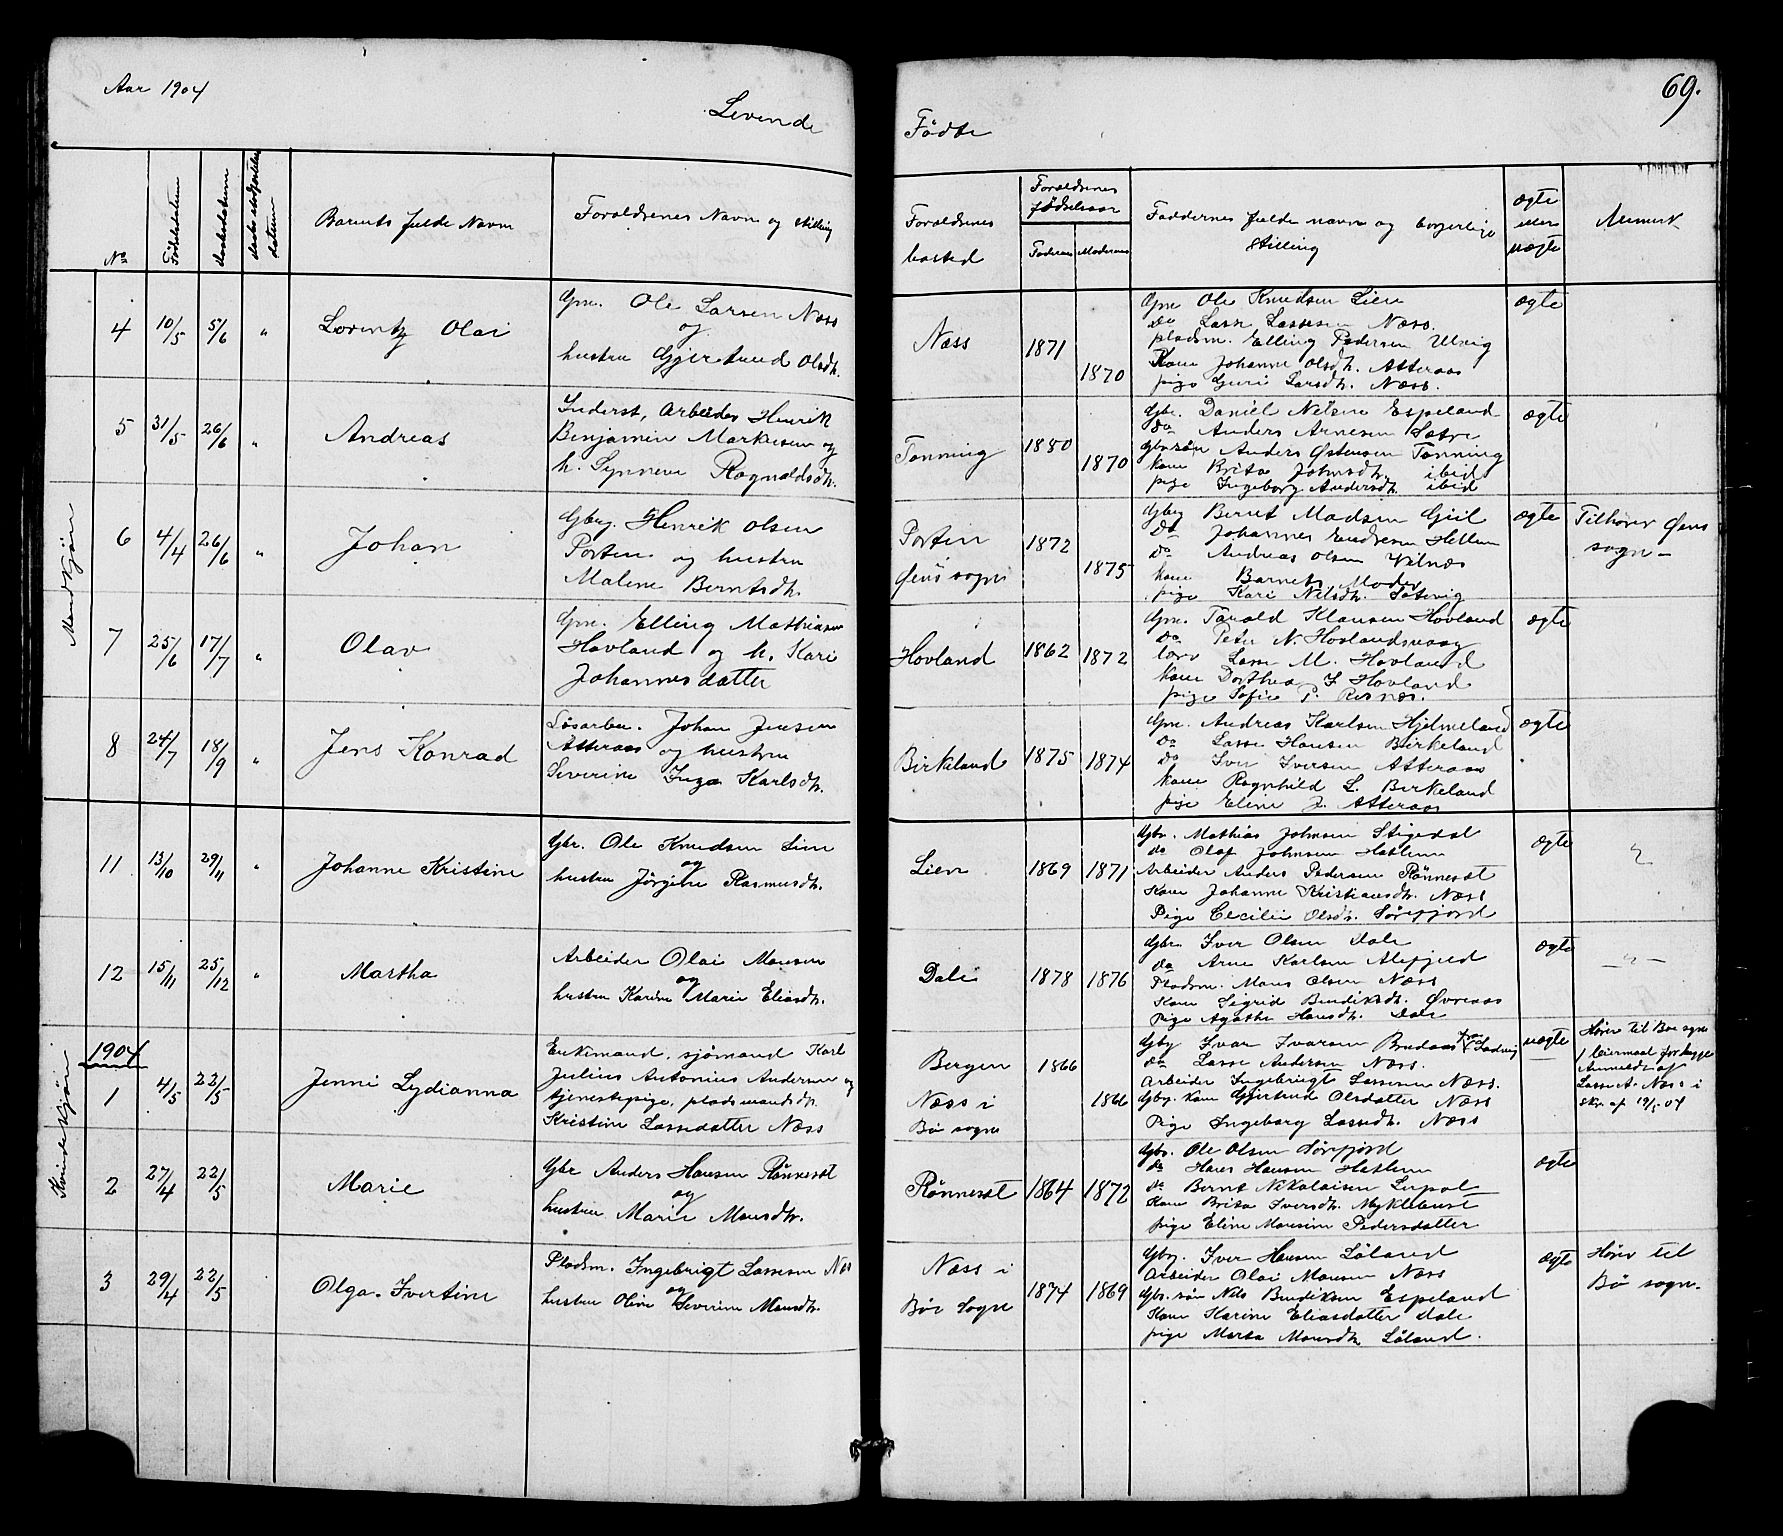 Aar 1904
Levende
Fødte
69.
No
Fødselsdatum
Daabsdatum
Barnets fulde Navn
Forældrenes Navn og stilling
Forældrenes
bosted
Forældrenes
fødselsaar
Faderens
Moderens
Faddernes fulde navn og borgerlige
stilling
ægte
eller
uægte
Anmerk
Mandkjøn
4 10/5 5/6 "
Lorentz Olai
Gm. Ole Larsen Næss
og
hustru Gjertrud Olsdt.
Næss
1871
1870
Gm Ole Knudsen Lien
do Lasse Lassesen Næss.
pladsm. Elling Pedersen Ulvig
Kone Johanne Olsdt. Atteraas
pige Guri Larsdt. Næss.
ægte
5 31/5 26/6 "
Andreas
Inderst, Arbeider Henrik
Benjamin Markusen og
h. Synneve Ragnvaldsdt.
Tonning
1880
1870
Gbr. Daniel Nilsen Espeland
do Anders Arnesen Sætre
Gbr. søn Anders Østensen Tonning
kone Brita Johnsdt. ibid
pige Ingeborg Andersdt. ibid
ægte
6 4/4 26/6 "
Johan
Gbrg. Henrik Olsen
Porten og hustru
Malene Berntsdt.
Porten
Øens sogn
1872
1875
Gbrg Bernt Madsen Giil
do Johannes Endresen Hetlem
do Andreas Olsen Vilnæs
kone Barnets Moder
pige Kari Nilsdt. Satevig
ægte
Tilhører Øens
sogn -
7 25/6 17/7 "
Olav
Gm. Elling Mathiasen
Hovland og h. Kari
Johannesdatter
Hovland
1862 1872
Gm. Tarald Klausen Hovland
do Peter N. Hovlandsvaag
Lasse M. Hovland
kone Dorthea I Hovland
pige Sofie P. Risnæs.
ægte
8 24/7 18/9 "
Jens Konrad
Løsarbei. Johan Jensen
Atteraas og hustru
Severine Inga Karlsdt.
Birkeland
1875 1874
Gm. Andreas Karlsen Hjelmeland
do Lasse Hansen Birkeland
do Iver Iversen Atteraas
kone Ragnhild L. Birkeland
pige Eline J. Atteraas
ægte
Kvindekjøn
11 13/10 29/11 "
Johanne Kristine
Gbr. Ole Knudsen Lien
og
hustru Jørgine Rasmusdt.
Lien
1869 1871
Gbr. Mathias Johnsen Stigedal
do Olaf Johnsen Hatlem
Arbeider Anders Pedersen Rønneset
Kone Johanne Kristiansdt. Næss
Pige Cecilie Olsdt. Sørefjord
ægte
12 15/11 25/12 "
Martha
Arbeider Olai Monsen
og
hustru Karine Marie Eliasdt.
Dale
1878 1876
Gbr. Iver Olsen Dale
do Arne Karlsen Alefjeld
Pladsm. Mons Olsen Næss
Kone Sigrid Bendiksdt. Øvreaas
Pige Agathe Hansdt. Dale
ægte
- " -
1904
1 4/5 22/5
Jenni Lydianna
Enkemand, sjømand Karl
Julius Antonius Andersen og
tjenestepige, pladsmandsdt.
Kristine Lassedatter Næss
Bergen
Næss i
Bø sogn
1866
1866
Gbg Ivar Ivarsen
do Lasse Andersen Næss.
Arbeider Ingebrigt Lassesen Næss.
Gbg. kone Gjertrud Olsdatter Næss
Pige Ingeborg Lassedt. Næss
uægte
Hører til Bø sogn
Anmeldt af
Lasse A. Næss i
Skr. af 19/5-04
2 27/4 22/5
Marie
Gbr Anders Hansen Rønneset
og
hustru Marie Monsdt.
Rønneset
1864 1872
Gbr. Ole Olsen Sørefjord
do Hans Hansen Hatlem
do Bernt Nikolaisen Leipol
Kone Brita Iversdt. Myklebust
pige Eline Monsine Pedersdatter
ægte
3 29/4 22/5
Olga Ivertine
Pladsm. Ingebrigt Lassesen Næs
og
hustru Oline Severine Monsdt.
Næss i
Bø Sogn
1874 1869
Gbg. Iver Hansen Løland
Arbeider Olai Monsen Næss
Gbr. søn Nils Bendiksen Espeland
Kone Karine Eliasdatter Dale
pige Marta Monsdt. Løland.
ægte
Hører til
Bø sogn.